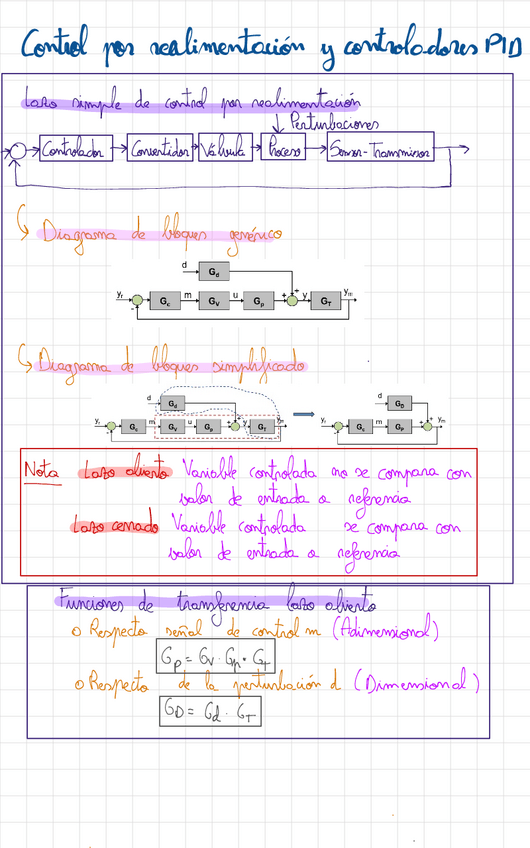 Control por realimentación y controladores PID
Lazo simple de control por realimentación
Perturbaciones
Controlador Convertidor Válvula Proceso Sensor-Transmisor
Diagrama de bloques genérico
d Gd
yr Gc m Gv u Gp y GT ym
Diagrama de bloques simplificado
d Gd d GD
yr Gc m Gv u Gp y GT ym yr Gc m Gp ym
Nota Lazo abierto Variable controlada no se compara con
valor de entrada o referencia
Lazo cerrado Variable controlada se compara con
valor de entrada o referencia
Funciones de transferencia lazo abierto
o Respecto señal de control m (Adimensional)
Gp = Gv · Gp · GT
o Respecto de la perturbación d (Dimensional)
GD = Gd · GT